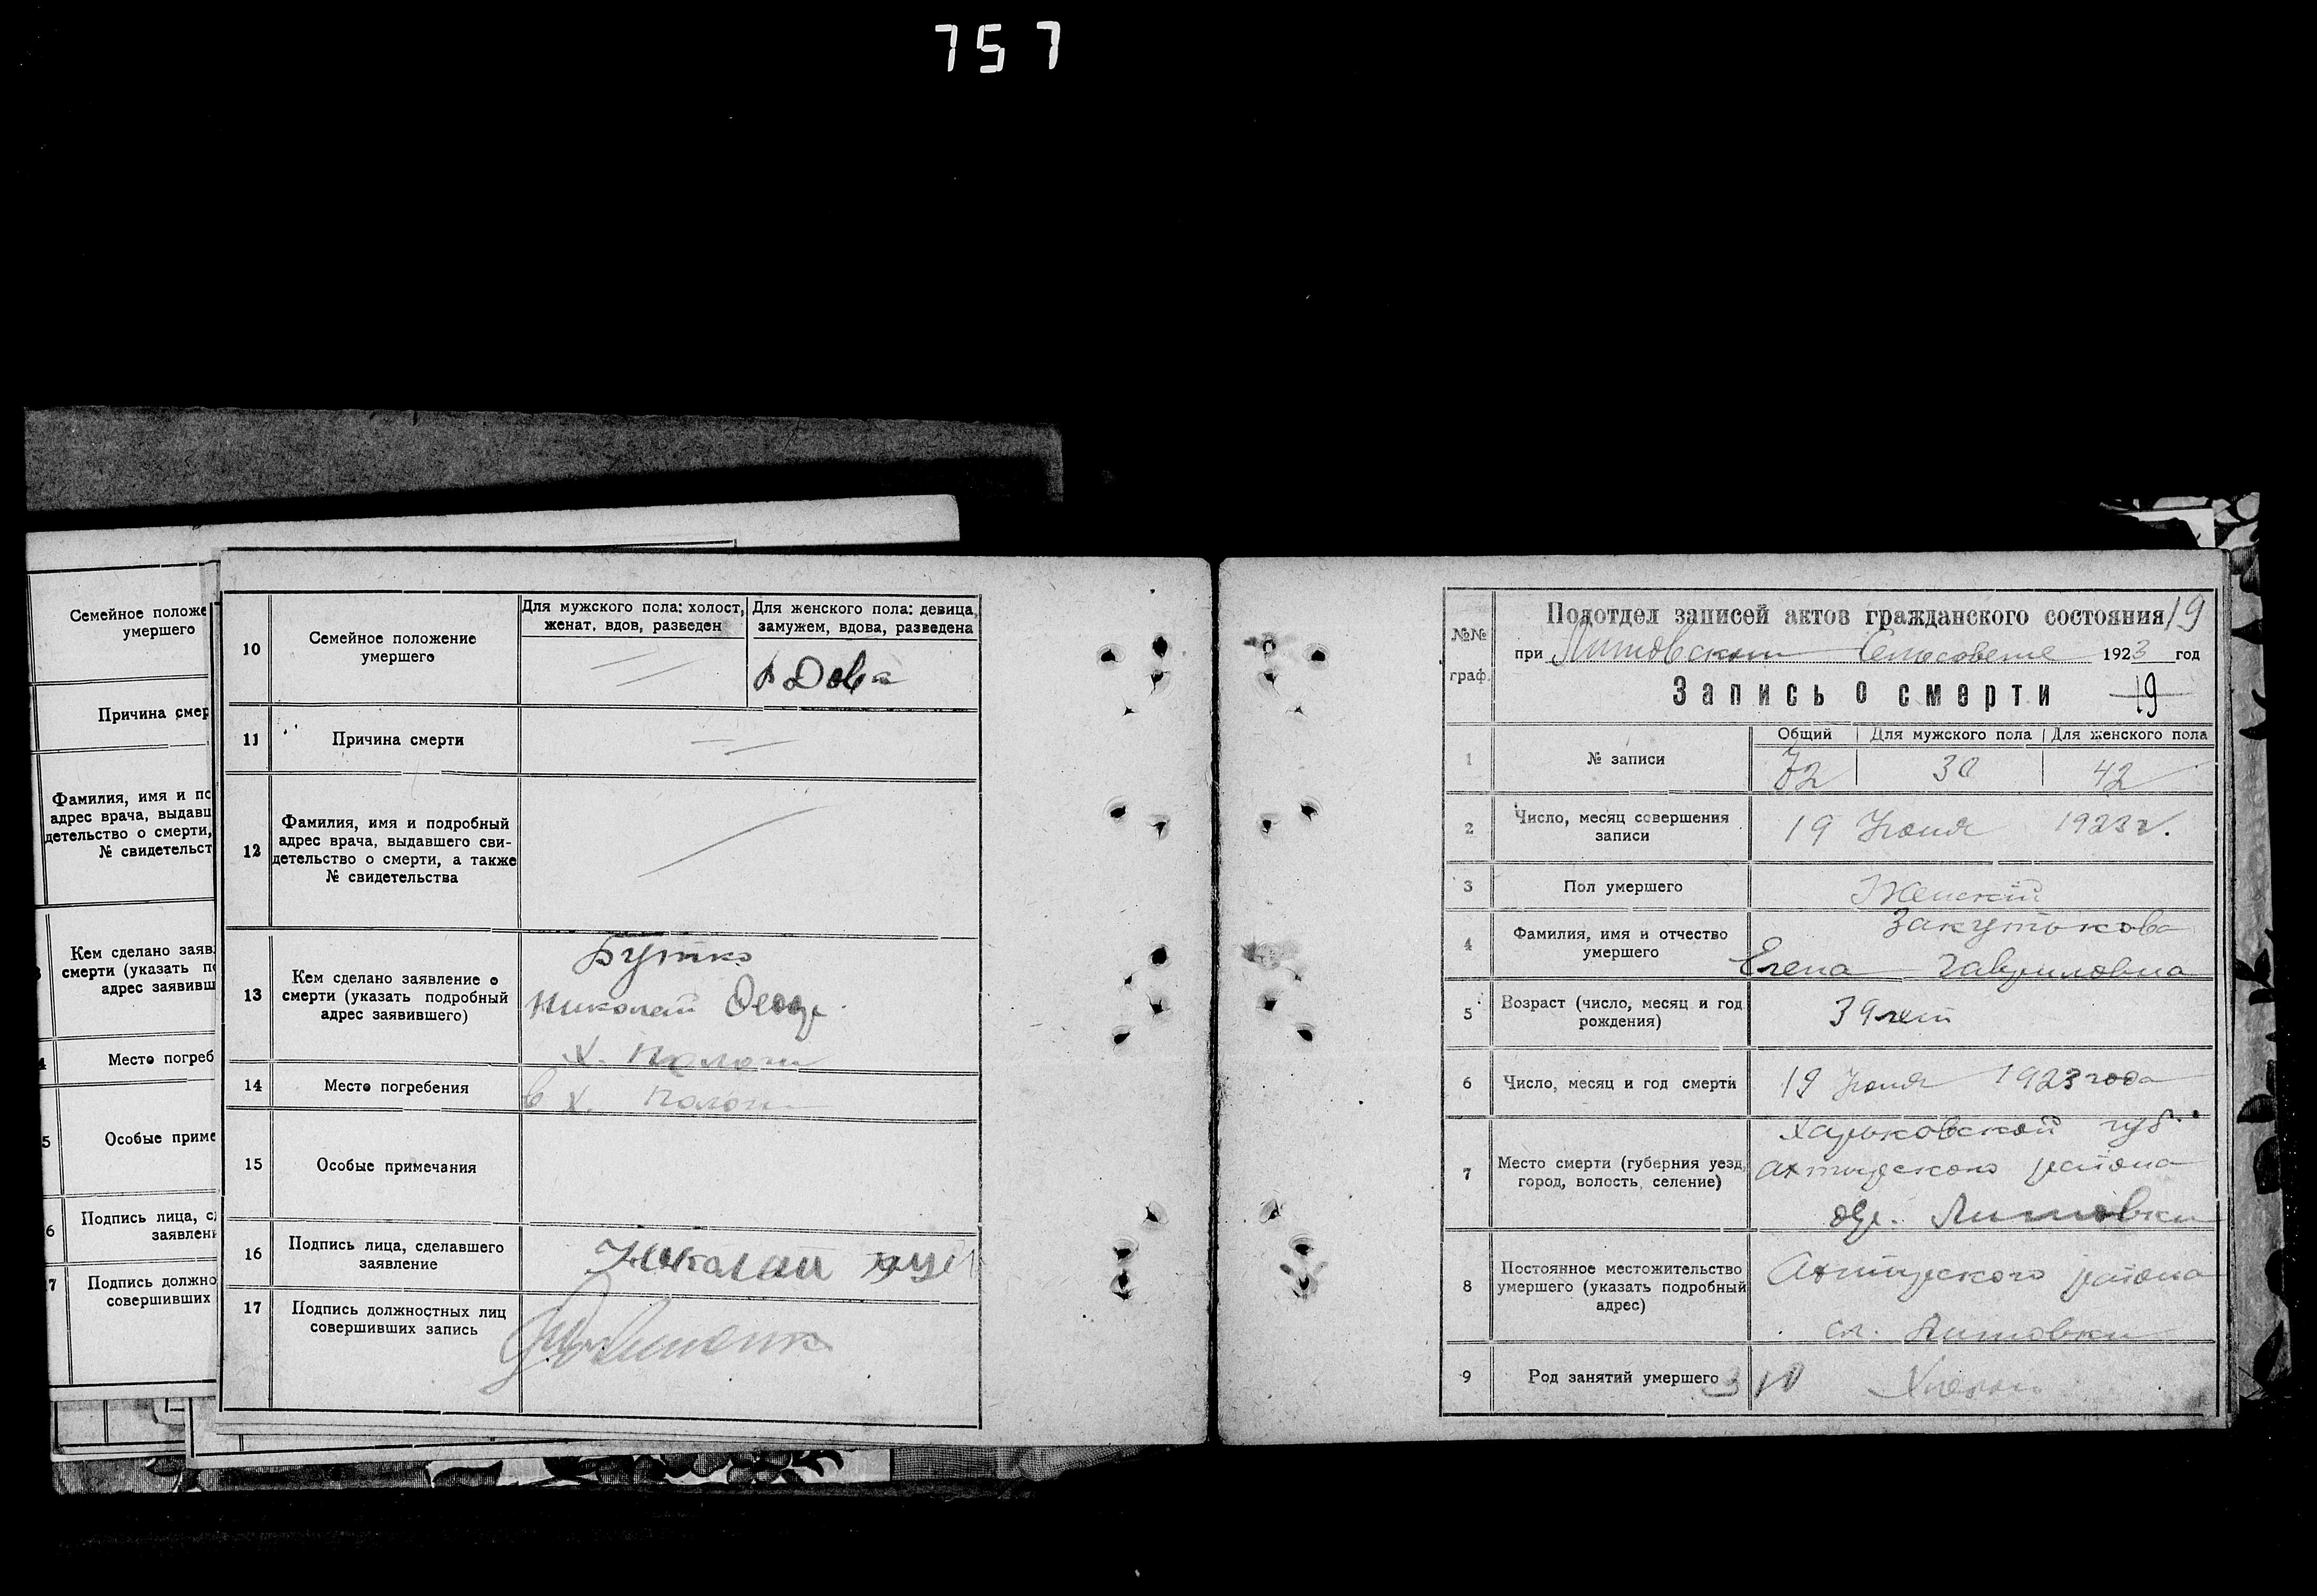 757
Семейное положе
умершего
Причина смер
Фамилия, имя и по
адрес врача, выдавш
детельство о смерти,
№ свидетельст
Кем сделано заяв
смерти (указать по
адрес заявивш
Место погреб
5 Особые приме
6 Подпись лица, с
заявлен
7 Подпись должно
совершивших
10 Семейное положение
умершего
Для мужского пола: холост,
женат, вдов, разведен
Для женского пола: девица,
замужем, вдова, разведена
вдова
11 Причина смерти
12 Фамилия, имя и подробный
адрес врача, выдавшего сви-
детельство о смерти, а также
№ свидетельства
13 Кем сделано заявление о
смерти (указать подробный
адрес заявившего)
Бутко
Николай Феод.
х. Пологи
14 Место погребения
в х. Пологи
15 Особые примечания
16 Подпись лица, сделавшего
заявление
Николай
17 Подпись должностных лиц
совершивших запись
№№
граф.
Подотдел записей актов гражданского состояния 19
при Литовском Сельсовете 1923 год
Запись о смерти 19
1 № записи
Общий Для мужского пола Для женского пола
72 30 42
2 Число, месяц совершения
записи
19 Июня 1923 г.
3 Пол умершего
Женский
4 Фамилия, имя и отчество
умершего
Закутькова
Елена Гавриловна
5 Возраст (число, месяц и год
рождения)
39 лет
6 Число, месяц и год смерти
19 Июня 1923 года
7 Место смерти (губерния уезд,
город, волость, селение)
Харьковской губ.
Ахтырского района
Литовки
8 Постоянное местожительство
умершего (указать подробный
адрес)
Ахтырского района
сл. Литовки
9 Род занятий умершего